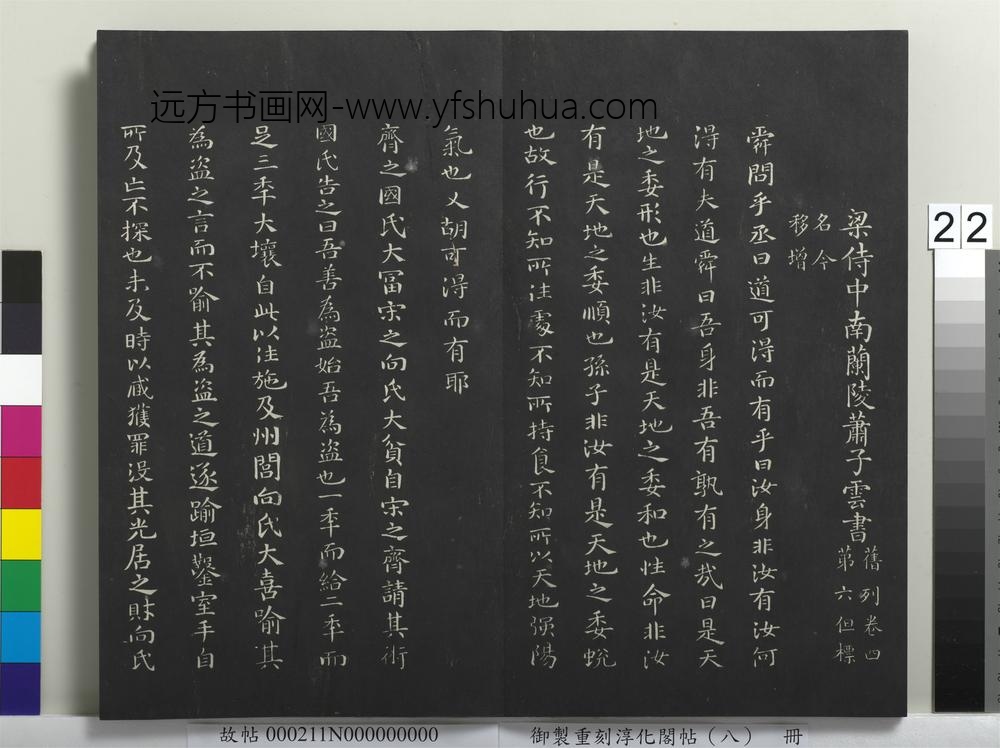 远方书画网-www.yfshuhua.com
梁侍中南蘭陵蕭子雲書
舊列卷四
第六但標
名今
移增
舜問乎丞曰道可得而有乎曰汝身非汝有汝何
得有夫道舜曰吾身非吾有孰有之哉曰是天
地之委形也生非汝有是天地之委和也性命非汝
有是天地之委順也孫子非汝有是天地之委蛻
也故行不知所往處不知所持食不知所以天地强陽
氣也又胡可得而有耶
齊之國氏大冨宋之向氏大貧自宋之齊請其術
國氏告之曰吾善為盜始吾為盜也一秊而給二秊而
足三秊大壤自此以往施及州閭向氏大喜喻其
為盜之言而不喻其為盜之道遂踰垣鑿室手自
所及亡不探也未及時以臧獲罪沒其先居之財向氏
22
故帖 000211N000000000
御製重刻淳化閣帖（八） 冊